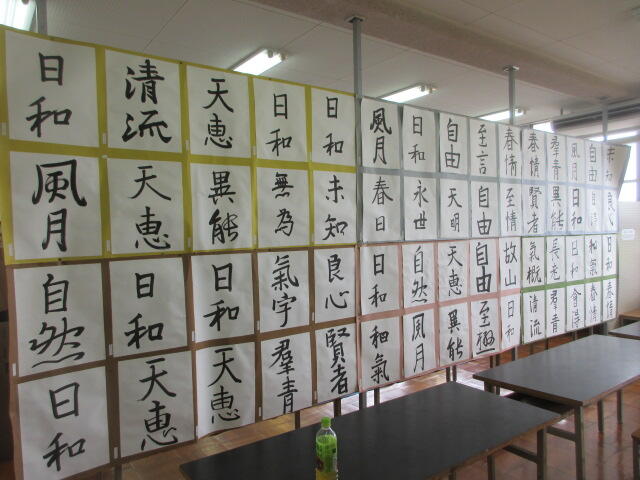 日和 清流 天恵 日和 日和 風月 日和 自由 至言 春情 春情 群青 風月 自由 未知
風月 天恵 異能 無為 未知 春日 永世 天明 自由 至情 賢者 異能 日和 良心
自然 日和 日和 氣宇 良心 日和 自然 天恵 自由 故山 氣概 長老 日和 和氣 日和
日和 天恵 天恵 羣青 賢者 和氣 風月 異能 日和 清流 羣青 會得 春情 春情